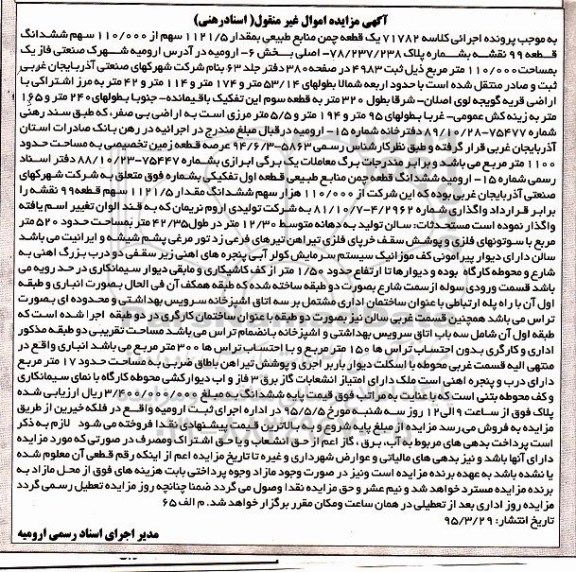 آگهی مزایده اموال غیر منقول( اسنادرهنی)
به موجب پرونده اجرائی کلاسه ۷۱۷۸۲ یک قطعه چمن منابع طبیعی بمقدار ۱۱۲۱/۵ سهم از ۱۱۰/۰۰۰ سهم ششدانگ
قطعه ۹۹ نقشه بشماره پلاک ۷۸/۲۳۷/۲۳۸- اصلی بخش ۶- ارومیه در آدرس ارومیه شهرک صنعتی فاز یک
بمساحت ۱۱۰/۰۰۰ متر مربع ذیل ثبت ۴۹۸۳ در صفحه ۳۸۰ دفتر جلد ۶۳ بنام شرکت شهرکهای صنعتی آذربایجان غربی
ثبت و صادر منتقل شده است با حدود اربعه شمالا بطولهای ۵۳/۱۴ متر و ۱۷۴ متر و ۱۱۴ متر و ۴۲ متر به مرز اشتراکی با
اراضی قریه گویجه لوی اصلان- شرقا بطول ۳۲۰ متر به قطعه سوم این تفکیک باقیمانده- جنوبا بطولهای ۲۴۰ متر و ۱۶۵
متر به زینه کش عمومی- غربا بطولهای ۹۵ متر و ۱۹۴ متر و ۵/۵ متر مرزی است به اراضی بی صفر، که طبق سند رهنی
شماره ۷۵۴۷۷-۸۹/۱۰/۲۸ دفترخانه شماره ۱۵- ارومیه در قبال مبلغ مندرج در اجرائیه در رهن بانک صادرات استان
آذربایجان غربی قرار گرفته و طبق نظر کارشناس رسمی ۵۸۶۳-۹۴/۶/۳ عرصه قطعه زمین تخصیصی به مساحت حدود
۱۱۰۰ متر مربع می باشد و برابر مندرجات برگ معاملات یک برگی ابرازی بشماره ۷۵۴۴۷-۸۸/۱۰/۲۳ دفتر اسناد
رسمی شماره ۱۵- ارومیه ششدانگ قطعه چمن منابع طبیعی قطعه اول تفکیکی بشماره فوق متعلق به شرکت شهرکهای
صنعتی آذربایجان غربی بوده که این شرکت از ۱۱۰/۰۰۰ هزار سهم ششدانگ مقدار ۱۱۲۱/۵ سهم قطعه ۹۹ نقشه را
برابر قرارداد واگذاری شماره ۴/۲۹۶۲-۸۱/۱۰/۷ به شرکت تولیدی اروم نریمان که به قند الوان تغییر اسم یافته
واگذار نموده است مستحدثات: سالن تولید به دهانه متوسط ۱۲/۳۰ متر در طول ۴۲/۳۵ متر بمساحت حدود ۵۲۰ متر
مربع با ستونهای فلزی و پوشش سقف خرپای فلزی تیراهن تیرهای فرعی زد تور مرغی پشم شیشه و ایرانیت می باشد
سالن دارای دیوار پیرامونی کف موزائیک سیستم سرمایش کولر آبی پنجره های اهنی زیر سقفی دو درب بزرگ اهنی به
شارع و محوطه کارگاه بوده و دیوارها تا ارتفاع حدود ۱/۵۰ متر از کف کاشیکاری و مابقی دیوار سیمانکاری در حد رویه می
باشد قسمت ورودی سوله از سمت شارع بصورت دو طبقه ساخته شده که طبقه همکف آن فی الحال بصورت انباری و طبقه
اول آن با راه پله ارتباطی با عنوان ساختمان اداری مشتمل بر سه اتاق اشپزخانه سرویس بهداشتی و محدوده ای بصورت
تراس می باشد همچنین قسمت غربی سالن نیز بصورت دو طبقه با عنوان ساختمان کارگری در دو طبقه اجرا شده است که
طبقه اول آن شامل سه باب اتاق سرویس بهداشتی و اشپزخانه بانضمام تراس می باشد مساحت تقریبی دو طبقه مذکور
اداری و کارگری بدون احتساب تراس ها ۱۵۰ متر مربع و با احتساب تراس ها ۳۰۰ متر مربع می باشد انباری واقع در
منتهی الیه قسمت غربی محوطه با اسکلت دیوار باربر اجری و پوشش تیراهن باطاق ضربی به مساحت حدود ۱۷ متر مربع
دارای درب و پنجره اهنی است ملک دارای امتیاز انشعابات گاز برق ۳ فاز و اب دیوارکشی محوطه کارگاه با نمای سیمانکاری
و کف محوطه بتنی است که با عنایت به مراتب فوق قیمت پایه ششدانگ به مبلغ ۳/۴۰۰/۰۱۰/۰۰۰ ریال ارزیابی شده
پلاک فوق از ساعت ۹ الی ۱۲ روز سه شنبه مورخ ۹۵/۵/۵ در اداره اجرای ثبت ارومیه واقع در فلکه خیرین از طریق
مزایده به فروش می رسد مزایده از مبلغ پایه شروع و به بالاترین قیمت پیشنهادی نقدا فروخته می شود لازم به ذکر
است پرداخت بدهی های مربوط به آب، برق، گاز اعم از حق انشعاب و یا حق اشتراک ومصرف در صورتی که مورد مزایده
دارای آنها باشد و نیز بدهی های مالیاتی و عوارض شهرداری و غیره تا تاریخ مزایده اعم از اینکه رقم قطعی آن معلوم شده
یا نشده باشد به عهده برنده مزایده است ونیز در صورت وجود مازاد وجوه پرداختی بابت هزینه های فوق از محل مازاد به
برنده مزایده مسترد خواهد شد و نیم عشر و حق مزایده نقدا وصول می گردد ضمنا چنانچه روز مزایده تعطیل رسمی گردد
مزایده روز اداری بعد از تعطیلی در همان ساعت ومکان مقرر برگزار خواهد شد. م الف ۶۵
تاریخ انتشار: ۹۵/۳/۲۹
مدیر اجرای اسناد رسمی ارومیه